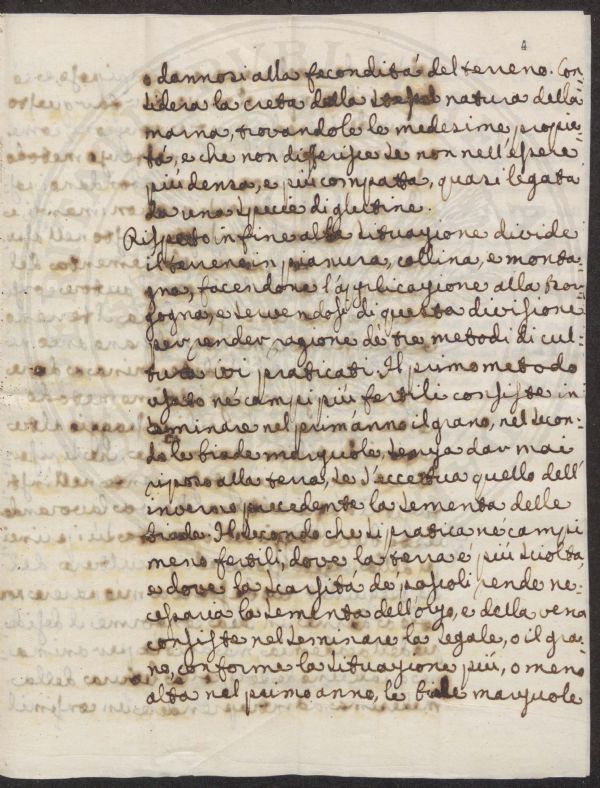 4
o dannosi alla fecondità del terreno. Con
sidera la creta della stessa natura della
marna, trovandole le medesime proprie-
tà, e che non differisce se non nell'essere
più densa, e più compatta, quasi legata
da una specie di glutine.
Rispetto infine alla situazione divide
il terreno in pianura, collina, e monta-
gna, facendone l'applicazione alla Bor-
gogna, e servendosi di questa divisione
per render ragione de' tre metodi di cul-
tura ivi praticati. Il primo metodo
usato ne' campi più fertili consiste in
seminare nel prim'anno il grano, nel secon-
do le biade marzuole, senza dar mai
riposo alla terra, se s'eccettua quello dell'
inverno precedente la sementa delle
biade. Il secondo che si pratica ne' campi
meno fertili, dove la terra è più sciolta,
e dove la scarsità de' pascoli rende ne-
cessaria la sementa dell'orzo, e della vena
consiste nel seminare la segale, o il gra-
no, conforme la situazione più, o meno
alta nel primo anno, le biade marzuole